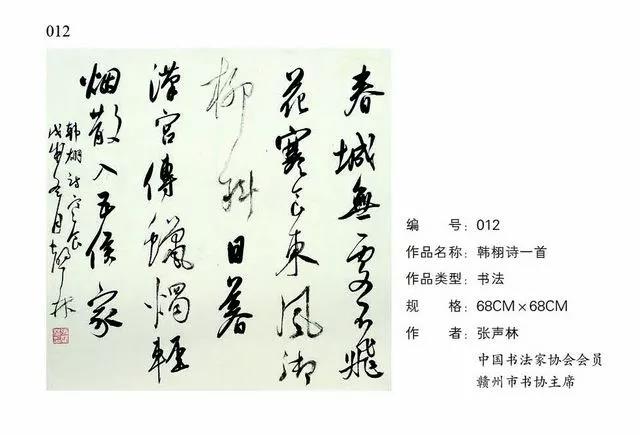 012
春城無處不飛
花寒食東風御
柳斜日暮
漢宮傳蠟燭輕
烟散入五侯家
韩翃詩寒食
戊戌冬月声林
编　　号:012
作品名称: 韩栩诗一首
作品类型: 书法
规　　格: 68CM×68CM
作　　者: 张声林
中国书法家协会会员
赣州市书协主席